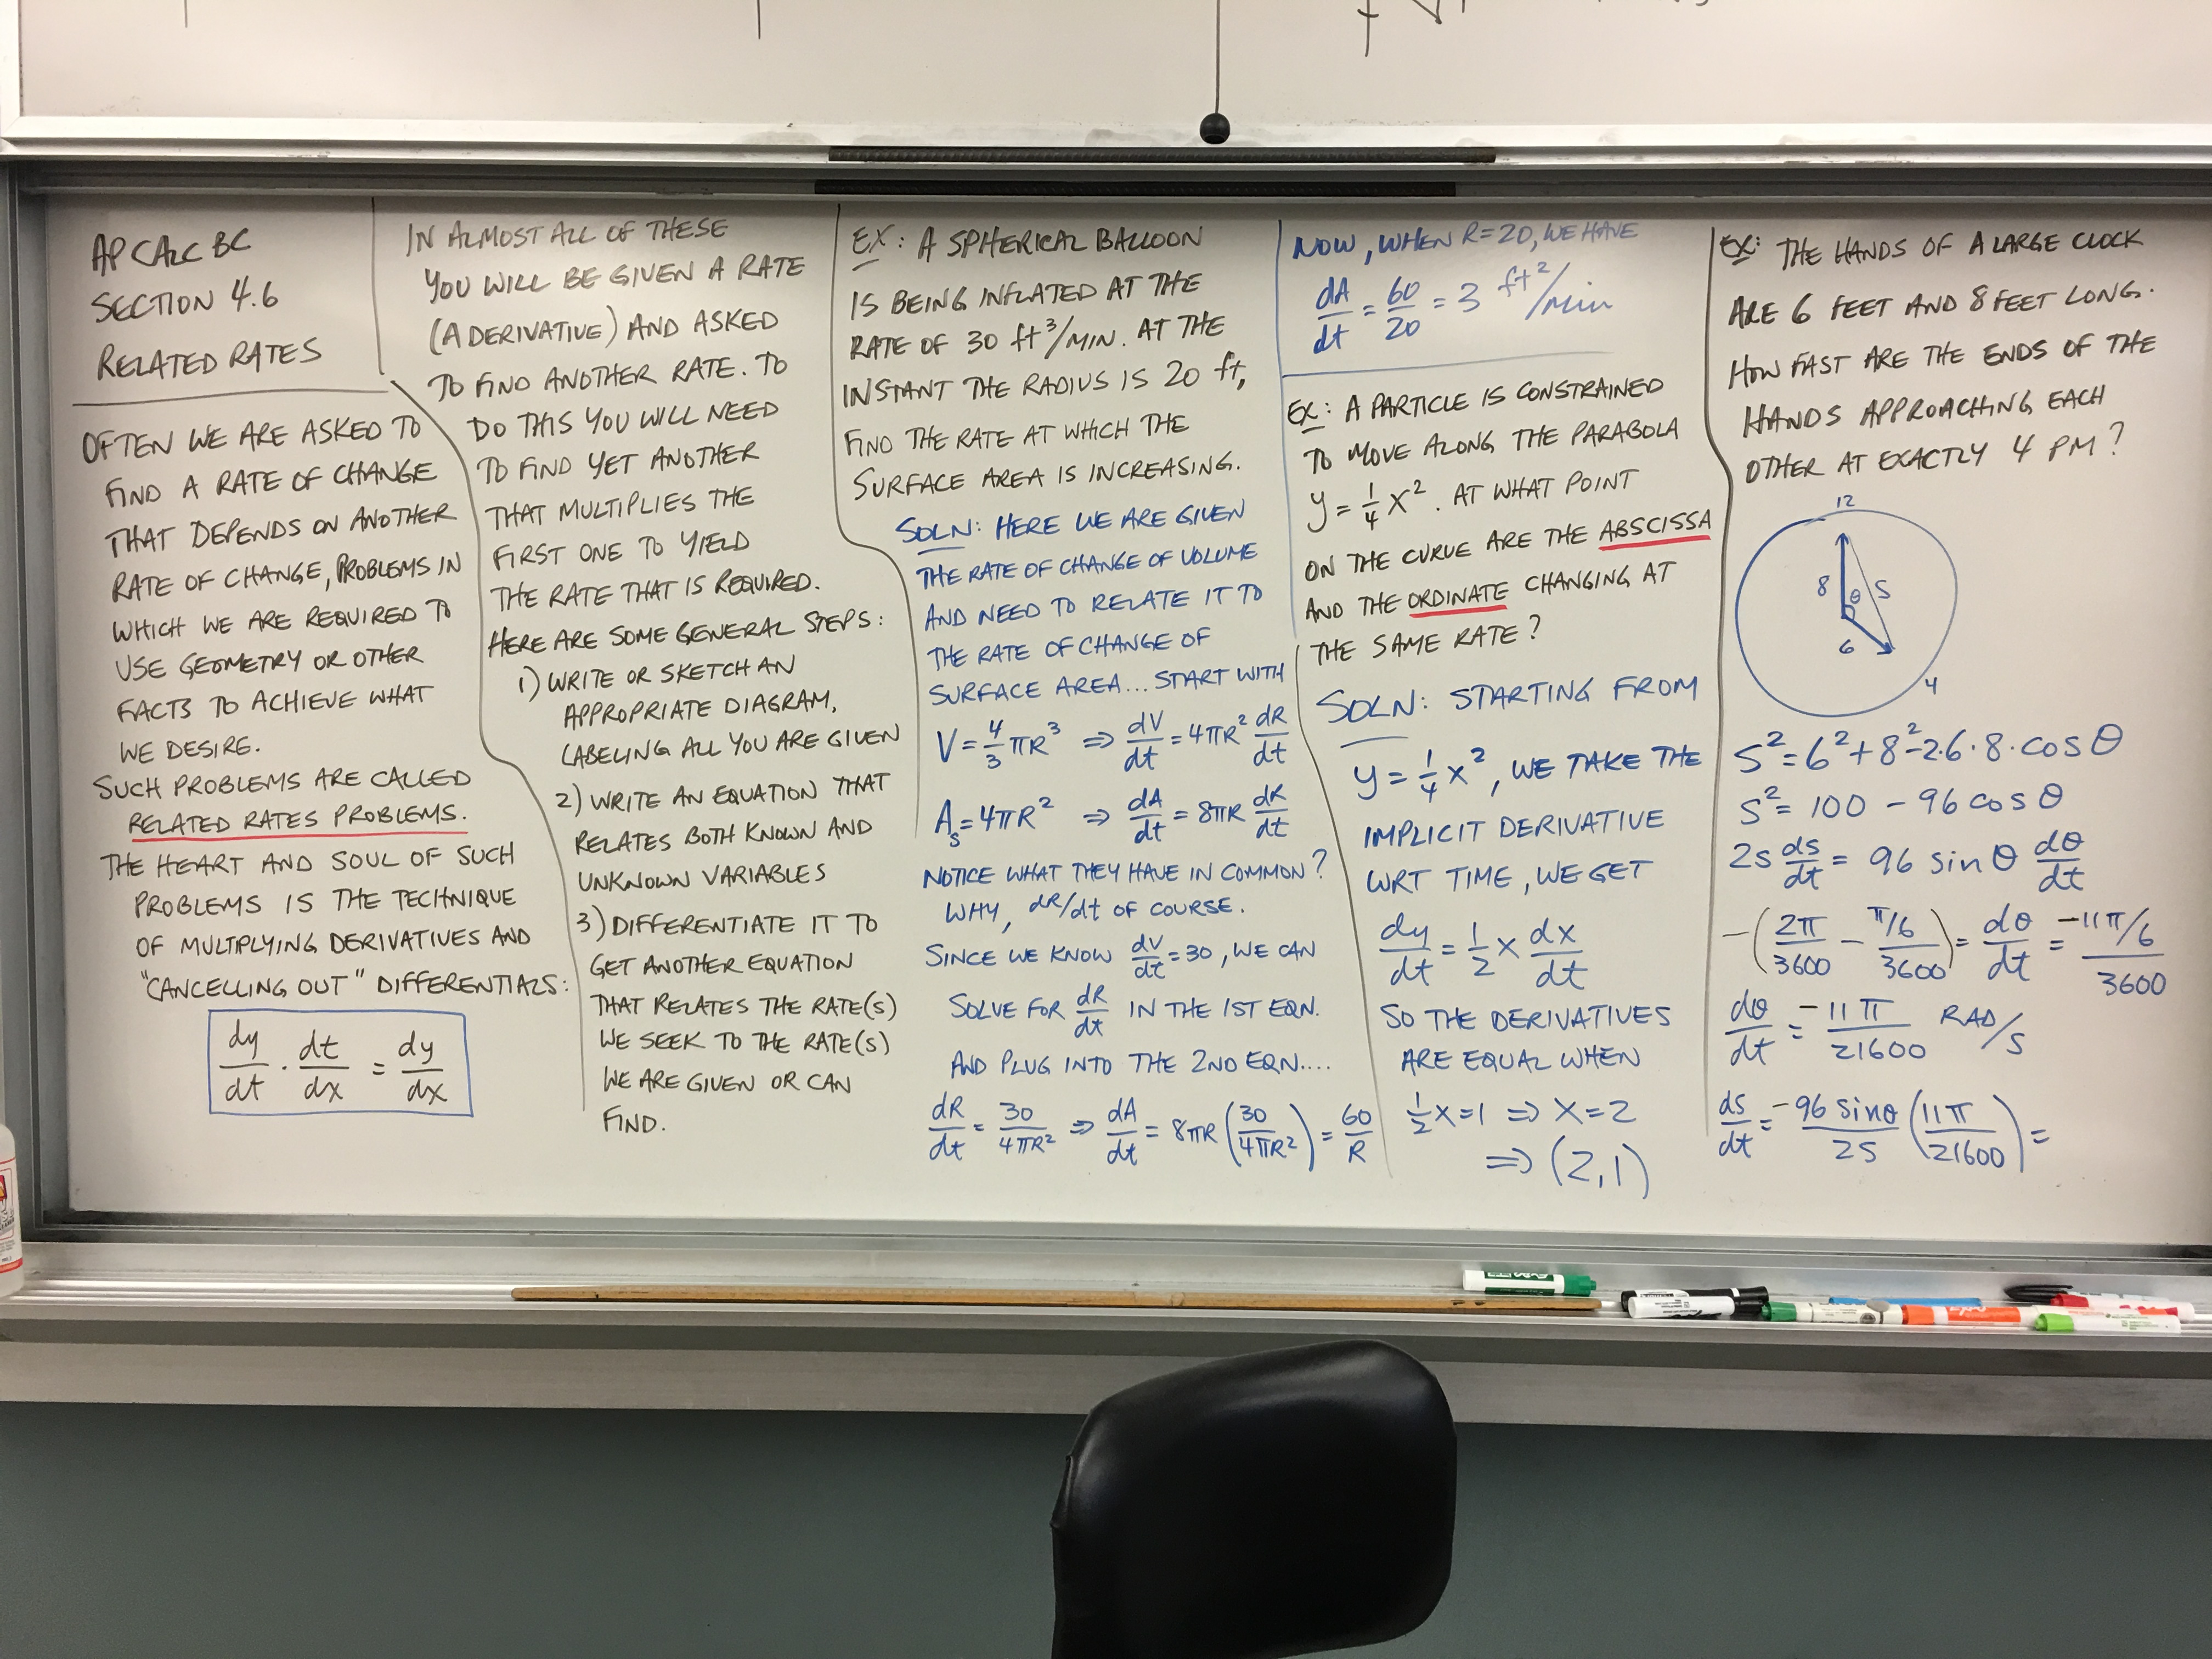 AP CALC BC
SECTION 4.6
RELATED RATES
OFTEN WE ARE ASKED TO
FIND A RATE OF CHANGE
THAT DEPENDS ON ANOTHER
RATE OF CHANGE, PROBLEMS IN
WHICH WE ARE REQUIRED TO
USE GEOMETRY OR OTHER
FACTS TO ACHIEVE WHAT
WE DESIRE.
SUCH PROBLEMS ARE CALLED
RELATED RATES PROBLEMS.
THE HEART AND SOUL OF SUCH
PROBLEMS IS THE TECHNIQUE
OF MULTIPLYING DERIVATIVES AND
"CANCELLING OUT" DIFFERENTIALS:
dy/dt · dt/dx = dy/dx
IN ALMOST ALL OF THESE
YOU WILL BE GIVEN A RATE
(A DERIVATIVE) AND ASKED
TO FIND ANOTHER RATE. TO
DO THIS YOU WILL NEED
TO FIND YET ANOTHER
THAT MULTIPLIES THE
FIRST ONE TO YIELD
THE RATE THAT IS REQUIRED.
HERE ARE SOME GENERAL STEPS:
1) WRITE OR SKETCH AN
APPROPRIATE DIAGRAM,
LABELING ALL YOU ARE GIVEN
2) WRITE AN EQUATION THAT
RELATES BOTH KNOWN AND
UNKNOWN VARIABLES
3) DIFFERENTIATE IT TO
GET ANOTHER EQUATION
THAT RELATES THE RATE(S)
WE SEEK TO THE RATE(S)
WE ARE GIVEN OR CAN
FIND.
EX: A SPHERICAL BALLOON
IS BEING INFLATED AT THE
RATE OF 30 ft³/MIN. AT THE
INSTANT THE RADIUS IS 20 ft,
FIND THE RATE AT WHICH THE
SURFACE AREA IS INCREASING.
SOLN: HERE WE ARE GIVEN
THE RATE OF CHANGE OF VOLUME
AND NEED TO RELATE IT TO
THE RATE OF CHANGE OF
SURFACE AREA... START WITH
V = 4/3 πR³ ⇒ dV/dt = 4πR² dR/dt
Aₛ = 4πR² ⇒ dA/dt = 8πR dR/dt
NOTICE WHAT THEY HAVE IN COMMON?
WHY, dR/dt OF COURSE.
SINCE WE KNOW dV/dt = 30, WE CAN
SOLVE FOR dR/dt IN THE 1ST EQN.
AND PLUG INTO THE 2ND EQN....
dR/dt = 30/4πR² ⇒ dA/dt = 8πR (30/4πR²) = 60/R
NOW, WHEN R=20, WE HAVE
dA/dt = 60/20 = 3 ft²/min
EX: A PARTICLE IS CONSTRAINED
TO MOVE ALONG THE PARABOLA
y = 1/4 x². AT WHAT POINT
ON THE CURVE ARE THE ABSCISSA
AND THE ORDINATE CHANGING AT
THE SAME RATE?
SOLN: STARTING FROM
y = 1/4 x², WE TAKE THE
IMPLICIT DERIVATIVE
WRT TIME, WE GET
dy/dt = 1/2 x dx/dt
SO THE DERIVATIVES
ARE EQUAL WHEN
1/2 x = 1 ⇒ x = 2
⇒ (2,1)
EX: THE HANDS OF A LARGE CLOCK
ARE 6 FEET AND 8 FEET LONG.
HOW FAST ARE THE ENDS OF THE
HANDS APPROACHING EACH
OTHER AT EXACTLY 4 PM?
12
8 θ S
6
4
S² = 6² + 8² - 2·6·8·cos θ
S² = 100 - 96 cos θ
2s ds/dt = 96 sin θ dθ/dt
-(2π/3600 - π/6/3600) = dθ/dt = -11π/6/3600
dθ/dt = -11π/21600 RAD/S
ds/dt = -96 sinθ/2S (11π/21600) =